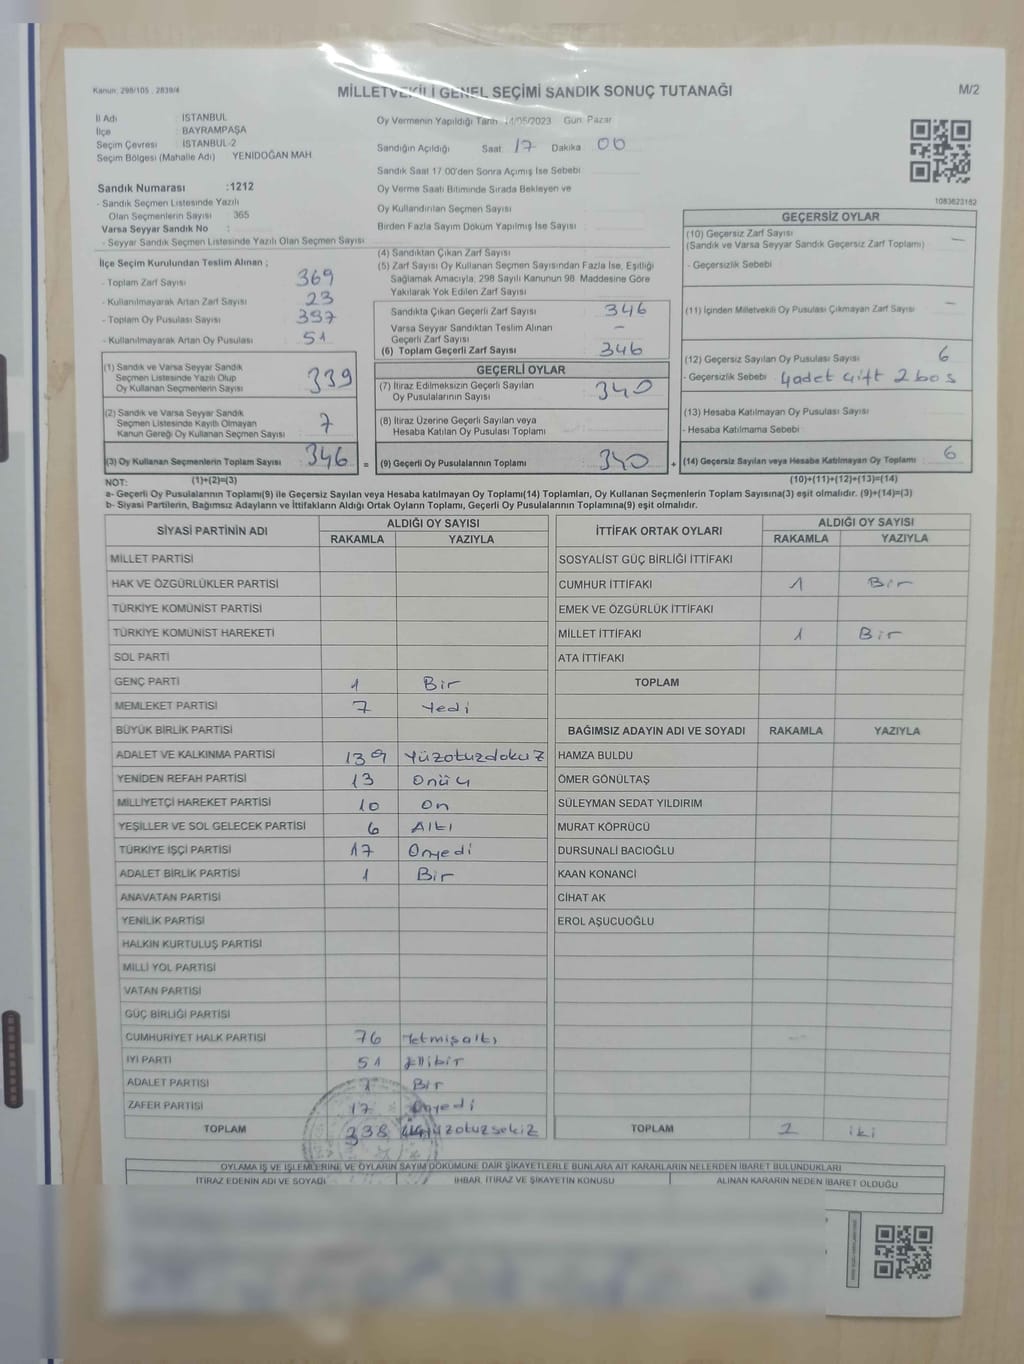 Kanun: 298/105 , 2839/4
MİLLETVEKİLİ GENEL SEÇİMİ SANDIK SONUÇ TUTANAĞI
M/2
İl Adı : İSTANBUL
İlçe : BAYRAMPAŞA
Seçim Çevresi : İSTANBUL-2
Seçim Bölgesi (Mahalle Adı) YENİDOĞAN MAH
Sandık Numarası :1212
- Sandık Seçmen Listesinde Yazılı
Olan Seçmenlerin Sayısı : 365
Varsa Seyyar Sandık No :
- Seyyar Sandık Seçmen Listesinde Yazılı Olan Seçmen Sayısı
Oy Vermenin Yapıldığı Tarih 14/05/2023 Gün Pazar
Sandığın Açıldığı Saat 17 Dakika 00
Sandık Saat 17 00'den Sonra Açımış İse Sebebi
Oy Verme Saati Bitiminde Sırada Bekleyen ve
Oy Kullandırılan Seçmen Sayısı
Birden Fazla Sayım Döküm Yapılmış İse Sayısı
1083623162
İlçe Seçim Kurulundan Teslim Alınan ;
- Toplam Zarf Sayısı 369
- Kullanılmayarak Artan Zarf Sayısı 23
- Toplam Oy Pusulası Sayısı 397
- Kullanılmayarak Artan Oy Pusulası 51
(1) Sandık ve Varsa Seyyar Sandık
Seçmen Listesinde Yazılı Olup
Oy Kullanan Seçmenlerin Sayısı 339
(2) Sandık ve Varsa Seyyar Sandık
Seçmen Listesinde Kayıtlı Olmayan
Kanun Gereği Oy Kullanan Seçmen Sayısı 7
(3) Oy Kullanan Seçmenlerin Toplam Sayısı : 346 =
(4) Sandıktan Çıkan Zarf Sayısı
(5) Zarf Sayısı Oy Kullanan Seçmen Sayısından Fazla İse, Eşitliği
Sağlamak Amacıyla, 298 Sayılı Kanunun 98. Maddesine Göre
Yakılarak Yok Edilen Zarf Sayısı
Sandıkta Çıkan Geçerli Zarf Sayısı 346
Varsa Seyyar Sandıktan Teslim Alınan
Geçerli Zarf Sayısı -
(6) Toplam Geçerli Zarf Sayısı 346
GEÇERLİ OYLAR
(7) İtiraz Edilmeksizin Geçerli Sayılan
Oy Pusulalarının Sayısı 340
(8) İtiraz Üzerine Geçerli Sayılan veya
Hesaba Katılan Oy Pusulası Toplamı
(9) Geçerli Oy Pusulalarının Toplamı 340 +
GEÇERSİZ OYLAR
(10) Geçersiz Zarf Sayısı -
(Sandık ve Varsa Seyyar Sandık Geçersiz Zarf Toplamı)
- Geçersizlik Sebebi
(11) İçinden Milletvekili Oy Pusulası Çıkmayan Zarf Sayısı -
(12) Geçersiz Sayılan Oy Pusulası Sayısı 6
- Geçersizlik Sebebi 4adet çift 2 boş
(13) Hesaba Katılmayan Oy Pusulası Sayısı
- Hesaba Katılmama Sebebi
(14) Geçersiz Sayılan veya Hesaba Katılmayan Oy Toplamı 6
NOT: (1)+(2)=(3) (10)+(11)+(12)+(13)=(14)
a- Geçerli Oy Pusulalarının Toplamı(9) ile Geçersiz Sayılan veya Hesaba katılmayan Oy Toplamı(14) Toplamları, Oy Kullanan Seçmenlerin Toplam Sayısına(3) eşit olmalıdır. (9)+(14)=(3)
b- Siyasi Partilerin, Bağımsız Adayların ve İttifakların Aldığı Ortak Oyların Toplamı, Geçerli Oy Pusulalarının Toplamına(9) eşit olmalıdır.
SİYASİ PARTİNİN ADI ALDIĞI OY SAYISI
RAKAMLA YAZIYLA
MİLLET PARTİSİ
HAK VE ÖZGÜRLÜKLER PARTİSİ
TÜRKİYE KOMÜNİST PARTİSİ
TÜRKİYE KOMÜNİST HAREKETİ
SOL PARTİ
GENÇ PARTİ 1 Bir
MEMLEKET PARTİSİ 7 Yedi
BÜYÜK BİRLİK PARTİSİ
ADALET VE KALKINMA PARTİSİ 139 Yüzotuzdokuz
YENİDEN REFAH PARTİSİ 13 Onüç
MİLLİYETÇİ HAREKET PARTİSİ 10 On
YEŞİLLER VE SOL GELECEK PARTİSİ 6 Altı
TÜRKİYE İŞÇİ PARTİSİ 17 Onyedi
ADALET BİRLİK PARTİSİ 1 Bir
ANAVATAN PARTİSİ
YENİLİK PARTİSİ
HALKIN KURTULUŞ PARTİSİ
MİLLİ YOL PARTİSİ
VATAN PARTİSİ
GÜÇ BİRLİĞİ PARTİSİ
CUMHURİYET HALK PARTİSİ 76 Yetmişaltı
İYİ PARTİ 51 Ellibir
ADALET PARTİSİ 1 Bir
ZAFER PARTİSİ 17 Onyedi
TOPLAM 338 üçyüzotuzsekiz
İTTİFAK ORTAK OYLARI ALDIĞI OY SAYISI
RAKAMLA YAZIYLA
SOSYALİST GÜÇ BİRLİĞİ İTTİFAKI
CUMHUR İTTİFAKI 1 Bir
EMEK VE ÖZGÜRLÜK İTTİFAKI
MİLLET İTTİFAKI 1 Bir
ATA İTTİFAKI
TOPLAM
BAĞIMSIZ ADAYIN ADI VE SOYADI RAKAMLA YAZIYLA
HAMZA BULDU
ÖMER GÖNÜLTAŞ
SÜLEYMAN SEDAT YILDIRIM
MURAT KÖPRÜCÜ
DURSUNALİ BACIOĞLU
KAAN KONANCİ
CİHAT AK
EROL AŞUCUOĞLU
TOPLAM 2 iki
OYLAMA İŞ VE İŞLEMLERİNE VE OYLARIN SAYIM DÖKÜMÜNE DAİR ŞİKAYETLERLE BUNLARA AİT KARARLARIN NELERDEN İBARET BULUNDUKLARI
İTİRAZ EDENİN ADI VE SOYADI İHBAR, İTİRAZ VE ŞİKAYETİN KONUSU ALINAN KARARIN NEDEN İBARET OLDUĞU